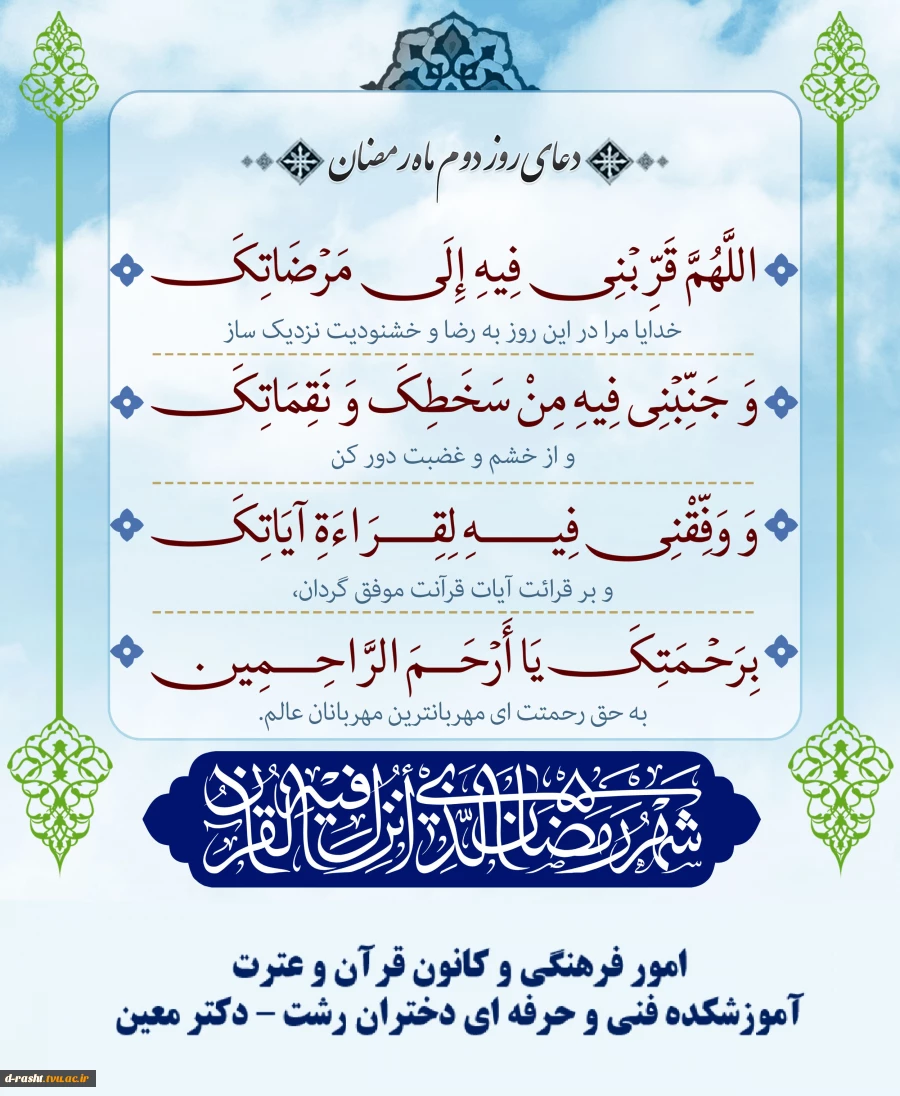 دعای روز دوم ماه رمضان
اللَّهُمَّ قَرِّبْنِی فِیهِ إِلَی مَرْضَاتِکَ
خدایا مرا در این روز به رضا و خشنودیت نزدیک ساز
وَ جَنِّبْنِی فِیهِ مِنْ سَخَطِکَ وَ نَقِمَاتِکَ
و از خشم و غضبت دور کن
وَ وَفِّقْنِی فِیهِ لِقِرَاءَةِ آیَاتِکَ
و بر قرائت آیات قرآنت موفق گردان،
بِرَحْمَتِکَ یَا أَرْحَمَ الرَّاحِمِین
به حق رحمتت ای مهربانترین مهربانان عالم.
شهر رمضان الذی أنزل فیه القرآن
امور فرهنگی و کانون قرآن و عترت
آموزشکده فنی و حرفه ای دختران رشت - دکتر معین
d-rasht.tvu.ac.ir